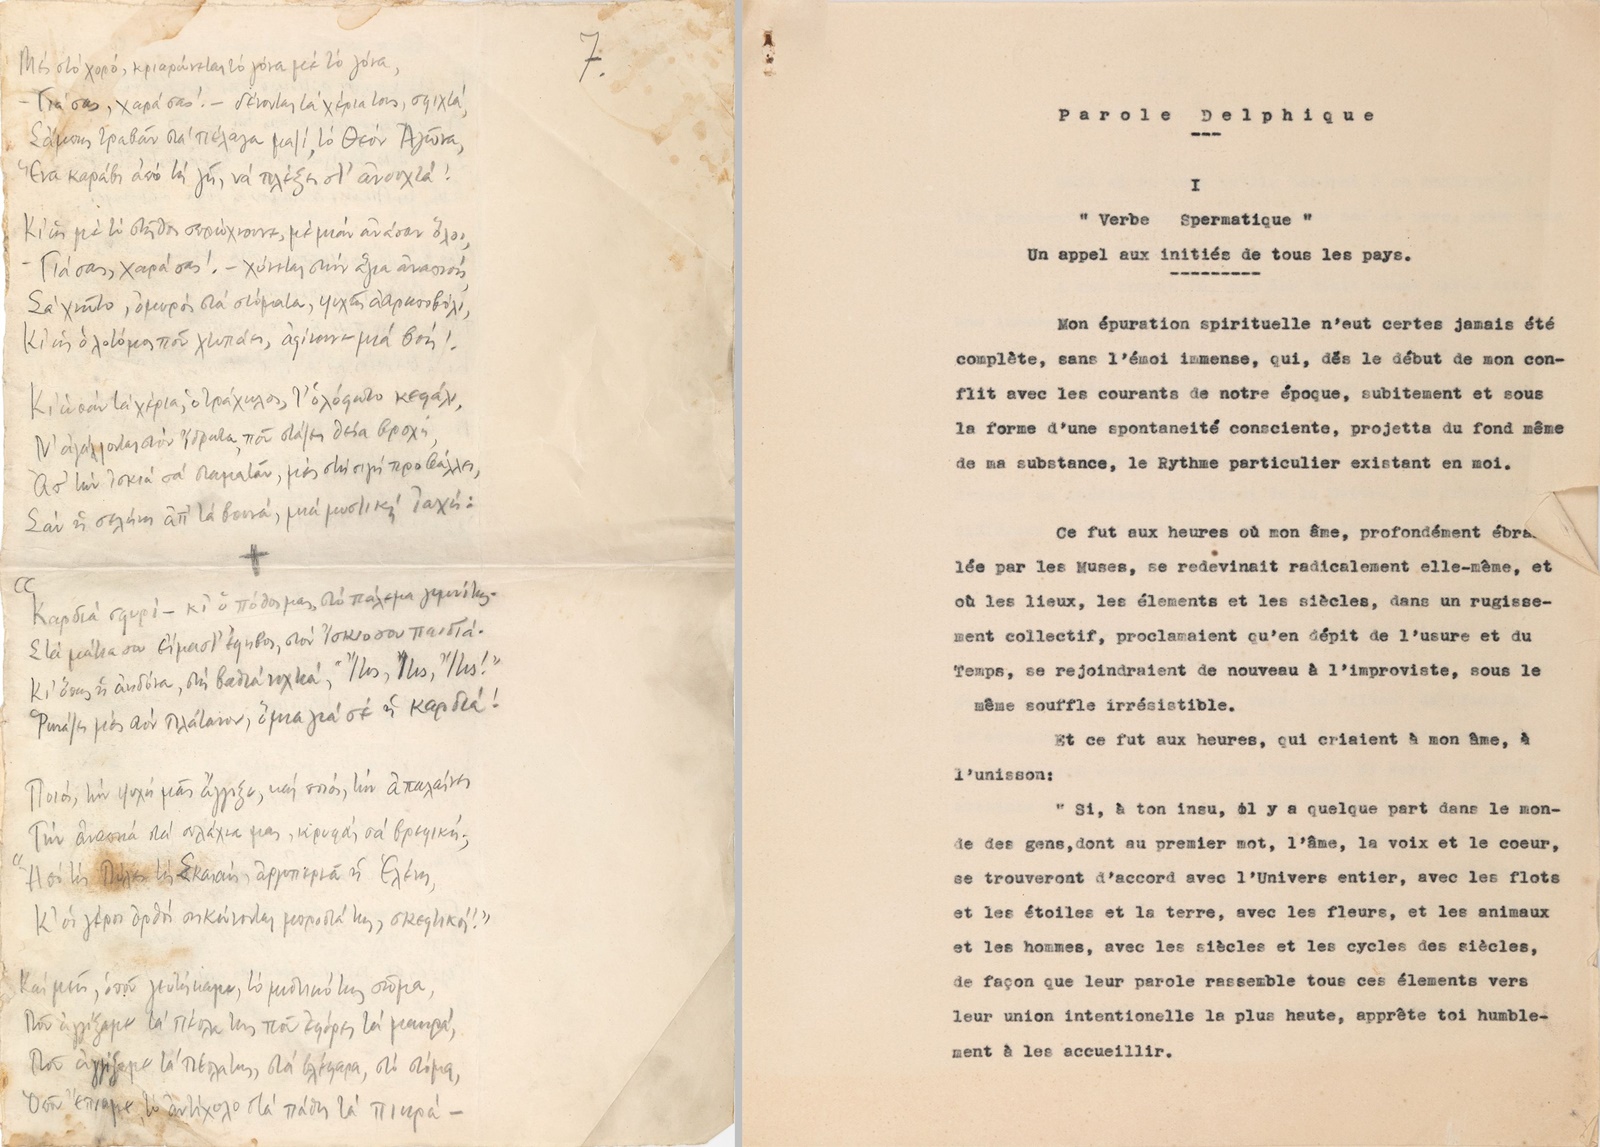 7.
Μὲς στὸ χορό, κριαρώνεται τὸ γόνα μὲ τὸ γόνα,
– Γιά σας, χαρά σας! – δένονται τὰ χέρια τους, σφιχτά,
τραβᾶν στὰ πέλαγα μαζί, τὸ Θεὸν
Ἕνα καράβι ἀπὸ τὴ γῆ, νὰ πλέξει στ' ἀνοιχτά!
Κι' ὡς μὲ τὸ στῆθος σπρώχνουνε, μὲ μιὰν ἀνάσαν ὅλοι,
– Γιά σας, χαρά σας! – χύνεται στὴν ἅγια ἀναπνοή,
Σὰ χνῶτο, ὁμπρὸς στὰ στόματα, ψυχῆς
Κι' ὡς ὁ λοτόμος ποῦ χτυπάει, ἀφίνουνε μιὰ βοή!
Κι' ὡσὰν τὰ χέρια, ὁ τράχηλος, τ' ὁλόφωτο κεφάλι,
ποῦ στάζει θεία βροχή,
Ἀπ' τὴν σὰ σταματᾶν, μὲς στὴ σιγὴ προβάλλει,
Σὰν ἡ σελήνη ἀπ' τὰ βουνά, μιὰ μυστικὴ ἰαχή:
+
“ Καρδιὰ σφυρί – κι' ὁ πόθος μας, στὸ πάλεμα
Στὰ μάτια σου εἴμαστ' ἔφηβοι, στὸν ἴσκιο σου παιδιά.
Κι' ὅπως ἡ ἀηδόνα, στὴ βαθιὰ νυχτιά, “Ἴτυς, Ἴτυς, Ἴτυς!”
μὲς στὸν πλάτανον, ὅμοια γιὰ σὲ ἡ καρδιά!
Ποιός, τὴν ψυχή μας ἄγγιξε, καὶ ποιός, τὴν ἁπαλαίνει
στὰ σπλάχνα μας, κρυφά, σὰ βρεφική;
“ τὶς Πύλες τὶς Σκαιές, ἀργοπερνᾶ ἡ Ἑλένη,
Κ' οἱ γέροι ὀρθοὶ σηκώνονται μπροστά της, σκεφτικοί!”
Καὶ μεῖς, ὁποῦ γευτήκαμε, τὸ μυθικό της στόμα,
Ποῦ ἀγγίξαμε τὰ πέπλα της ποῦ ἐφόρει τὰ μακρυά,
Ποῦ ἀγγίξαμε τὰ πέπλα της, στὰ βλέφαρα, στὸ στόμα,
Ὁποῦ ἤπιαμε, τὸ ἀντίχολο στὰ πάθη τὰ πικρά –
Parole Delphique
I
" Verbe Spermatique "
Un appel aux initiés de tous les pays.
Mon épuration spirituelle n'eut certes jamais été
complète, sans l'émoi immense, qui, dés le début de mon con-
flit avec les courants de notre époque, subitement et sous
la forme d'une spontaneité consciente, projetta du fond même
de ma substance, le Rythme particulier existant en moi.
Ce fut aux heures où mon âme, profondément ébra
lée par les Muses, se redevinait radicalement elle-même, et
où les lieux, les élements et les siècles, dans un rugisse-
ment collectif, proclamaient qu'en dépit de l'usure et du
Temps, se rejoindraient de nouveau à l'improviste, sous le
même souffle irrésistible.
Et ce fut aux heures, qui criaient à mon âme, à
l'unisson:
" Si, à ton insu, il y a quelque part dans le mon-
de des gens,dont au premier mot, l'âme, la voix et le coeur,
se trouveront d'accord avec l'Univers entier, avec les flots
et les étoiles et la terre, avec les fleurs, et les animaux
et les hommes, avec les siècles et les cycles des siècles,
de façon que leur parole rassemble tous ces élements vers
leur union intentionelle la plus haute, apprête toi humble-
ment à les accueillir.